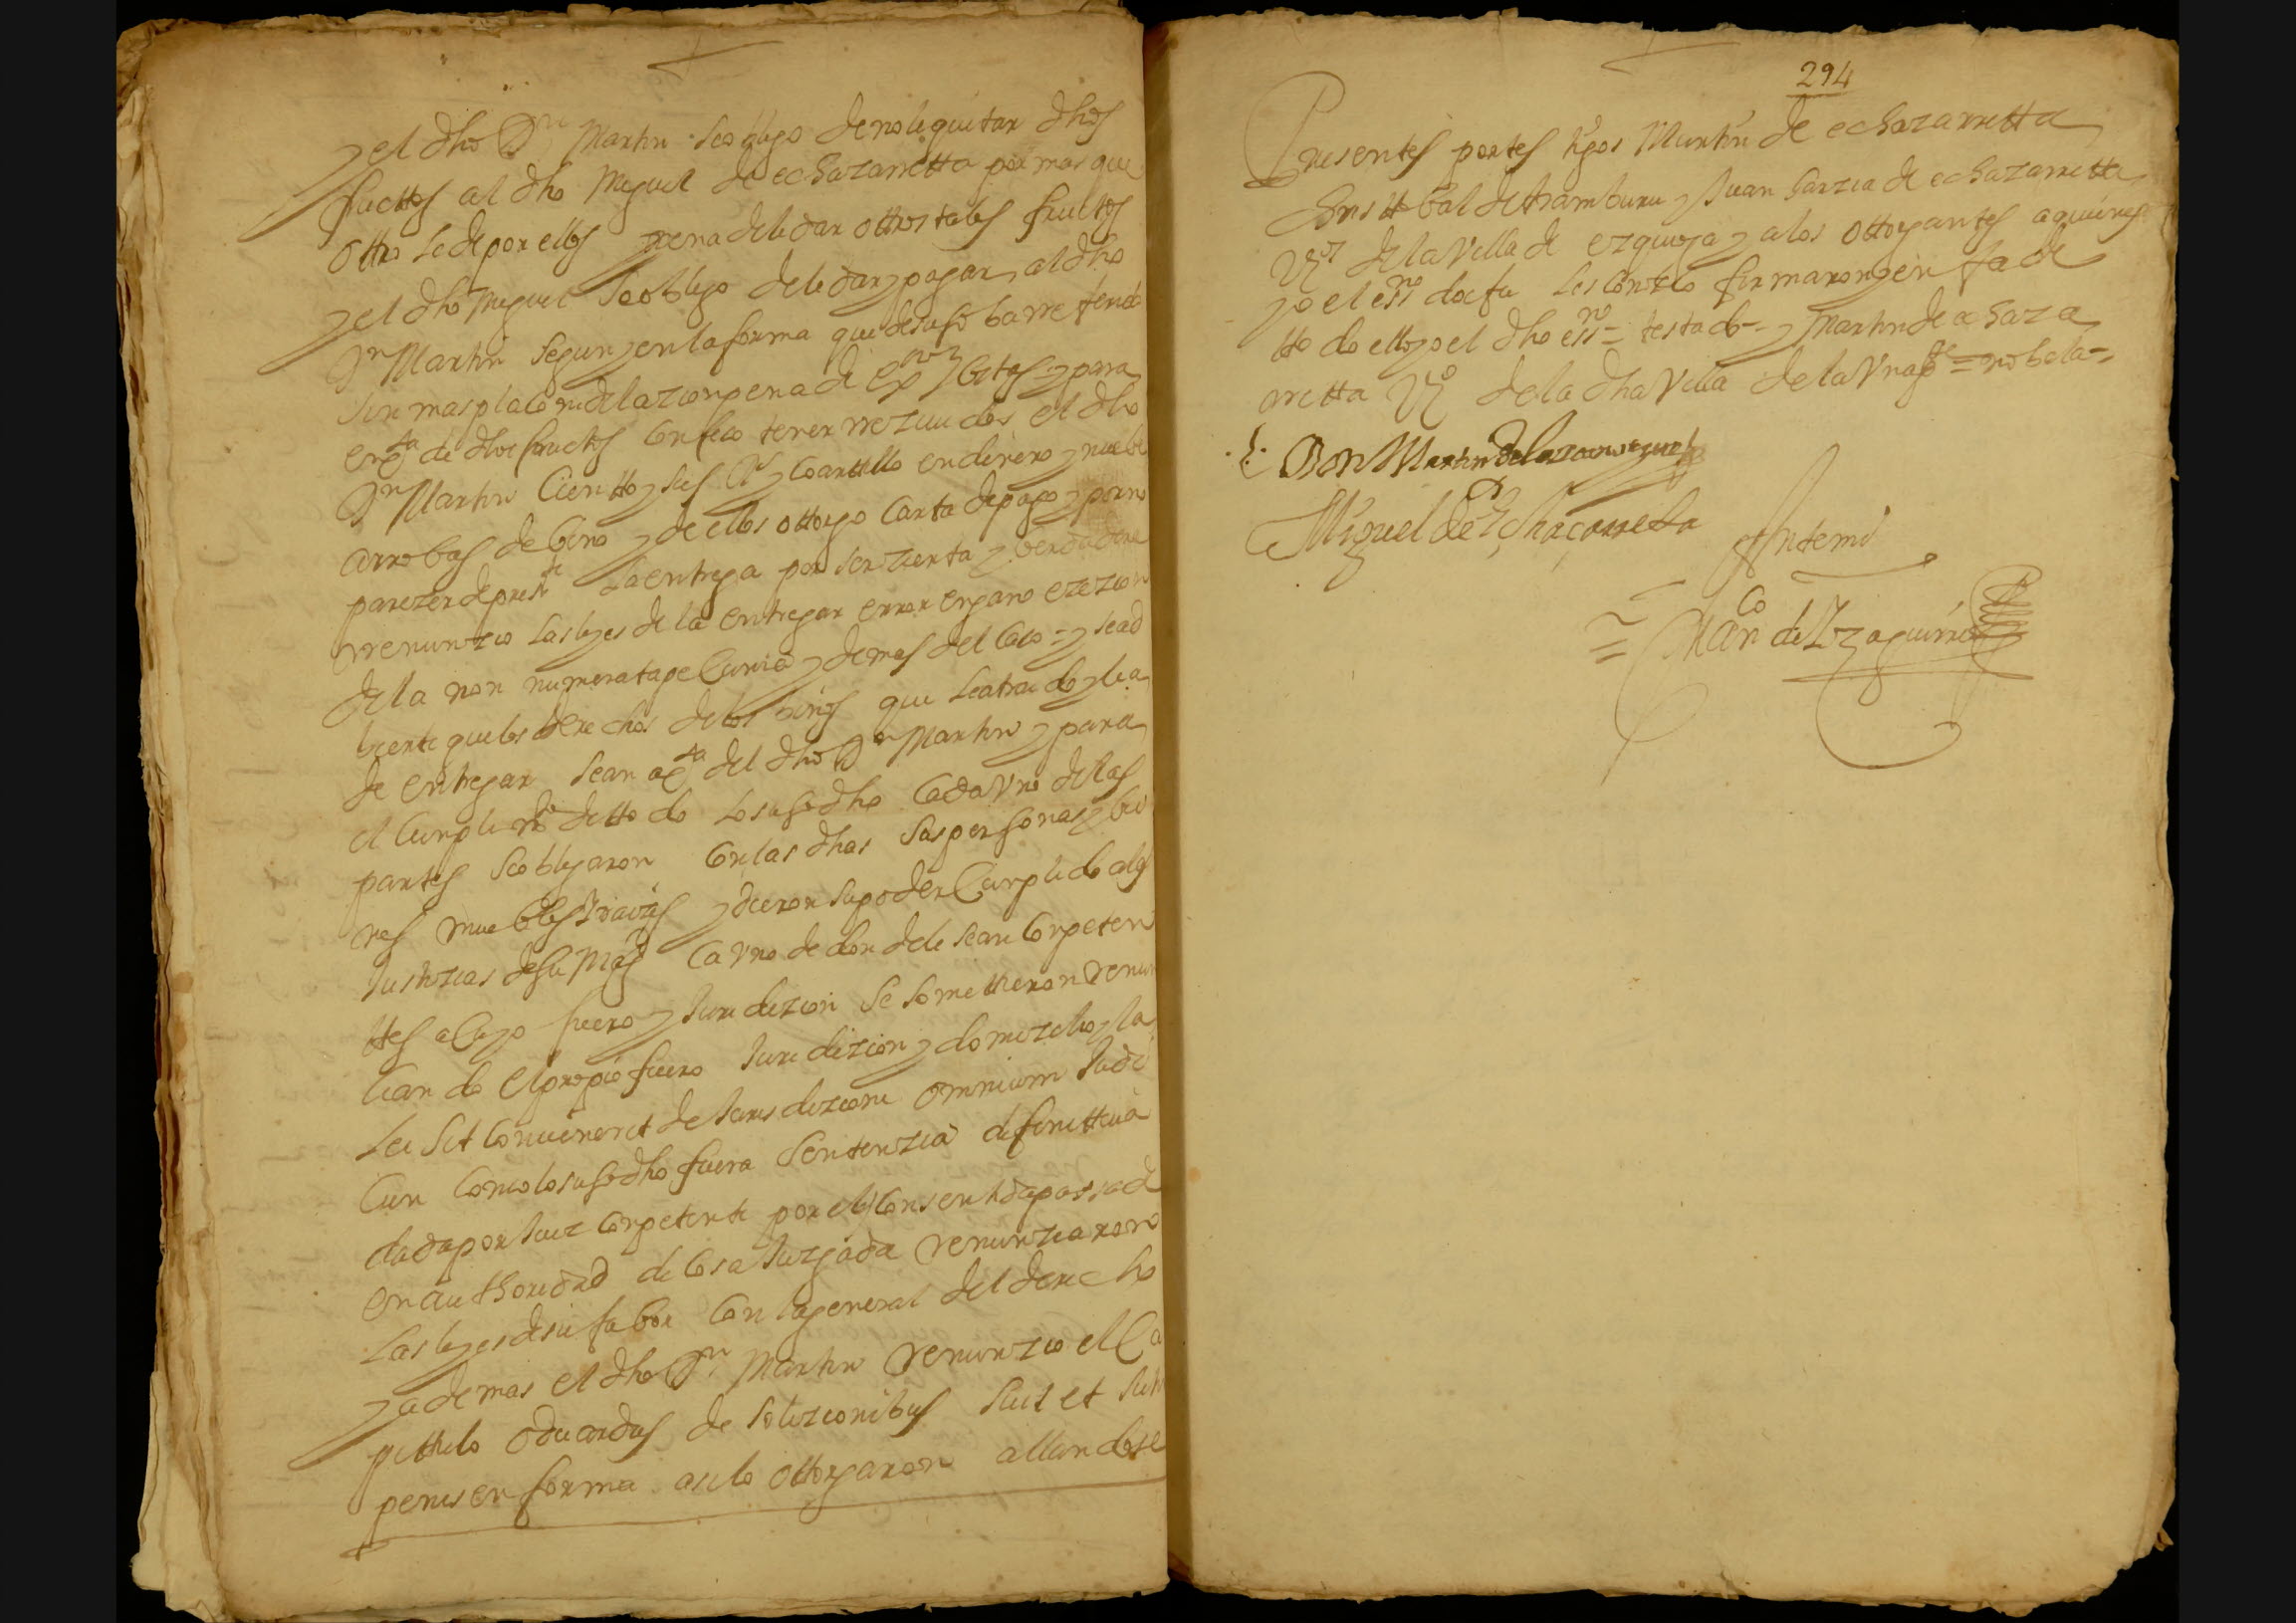 y el dho Dn Martin se obligo de no le quitar dhos
fructtos al dho Miguel de echazarretta por mas que
ottro le de por ellos pena de le dar ottros tales fructtos
y el dho Miguel se obligo de le dar y pagar al dho
Dn Martin segun y en la forma que desuso ba rreferido
sin mas plaço ni dilazion pena de exon y costas y para
en qta de dhos fructos confeso tener rrezivido el dho
Dn Martin ciento y seis Rs y coartillo en dinero y nuebe
arrobas de bino y de ellos ottorgo carta de pago y por no
parezer de preste la entrega por ser zierta y berdadera
rrenunzio las leyes de la entregar error engano ezezion
de la non numerata pecunia y demas del caso = y se ad
bierte que los derechos de los binos que se a traido y se a
de entregar sean a qta del dho Dn Martin y para
el cunplimto de ttodo lo susodho cada uno de las
partes se obligaron con las dhas sus personas y bie
nes muebles y raizes y dieron su poder cunplido a las
Justizias de su Magd ca uno de donde le sean conpeten
ttes a cuyo fuero y Juridizion se somettieron renun
ciando el propio fuero Juridizion y domizilio y la
lei sit convenerit de Jurisdizione omnium Judi
cun como lo susodho fuera sentenzia difinittiva
dada por Juez conpetente por ellos consentida passad
en authoridad de cosa Juzgada renunziaron
las leyes de su fabor con la general del derecho
y ademas el dho Dn Martin renunzio el ca
pittulo oduardus de soluzionibus suan et sun
penis en forma asi lo ottorgaron allandose
294
Presentes por tesgos Martin de echazarretta
Christtobal de Aramburu y Juan Garzia de echazarretta
Vos de la Villa de ezquioga y a los ottorgantes a quienes
yo el essno doi fe les conozco firmaron y en fe de
tto do ello yo el dho essno = testado = y Martin de echaza
rretta Vo de la dha Villa de la una pte = no bala =
Don Martin de
Miguel de Echaçarreta
Antemi
Franco de Yzaguirre